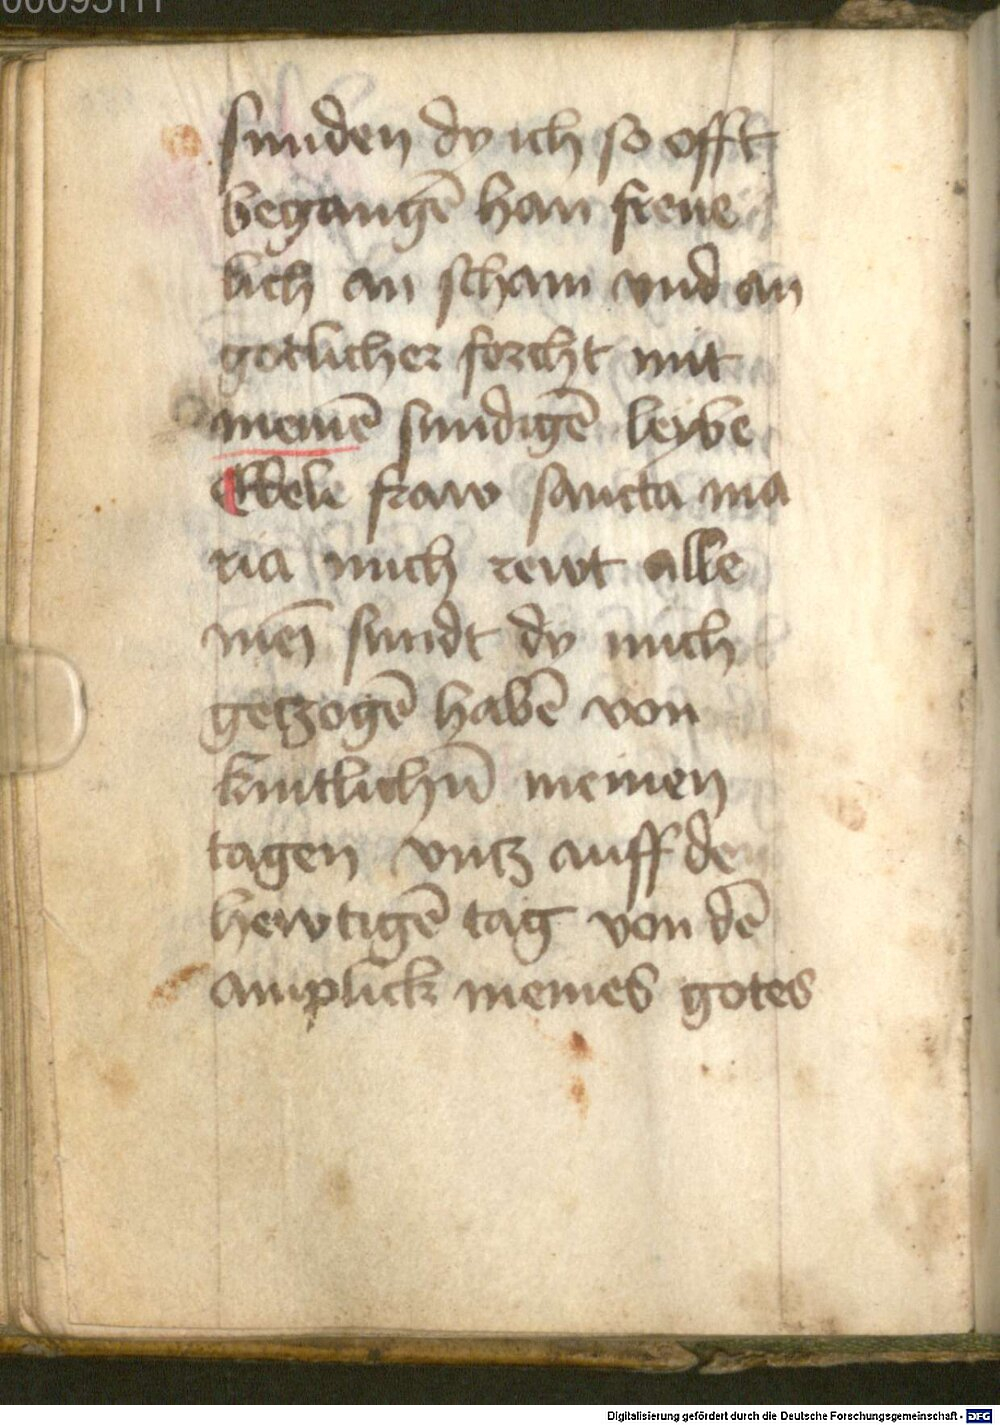 00095111
sunden dy ich so offt
begangē han freue
lich an scham vnd an
gotlicher forcht mit
meinē sundigē leybe
Edele fraw sancta ma
ria mich rewt alle
mei᷑ sundt dy mich
getzogē habē von
kintlichn̄ meinen
tagen vntz auff den
hewtigē tag von dē
anplick meines gotes
Digitalisierung gefördert durch die Deutsche Forschungsgemeinschaft - DFG